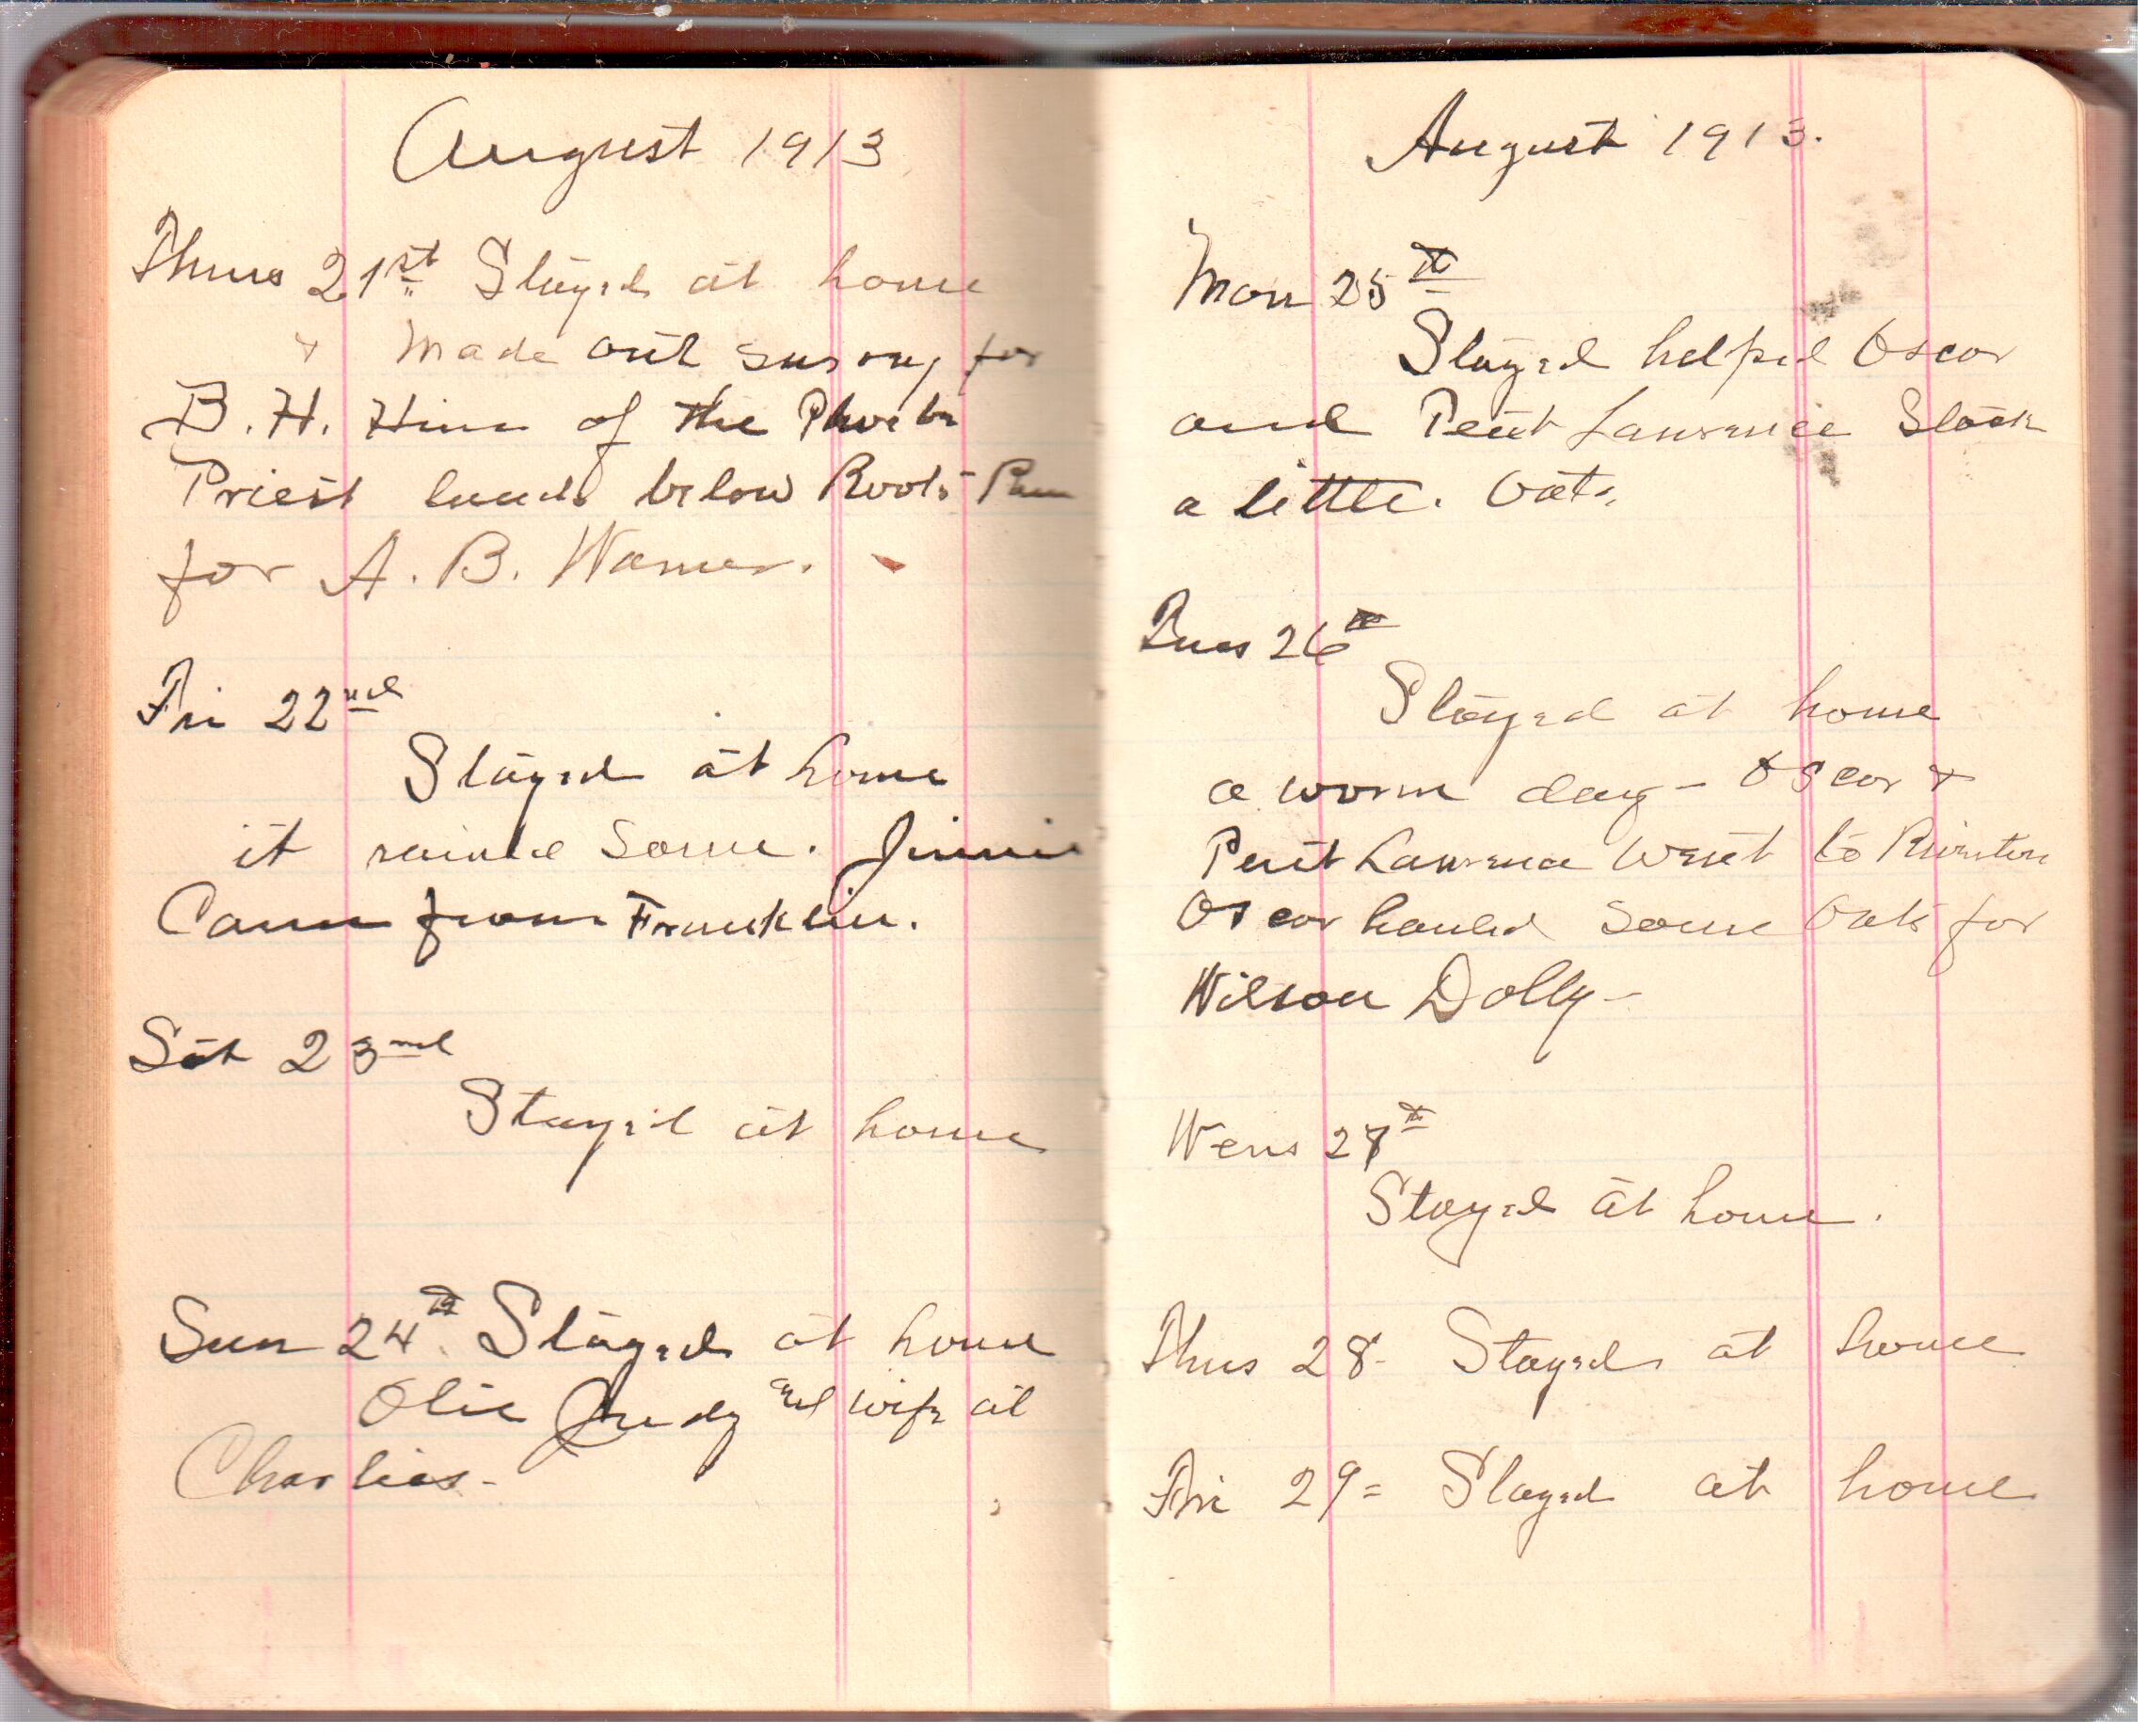 August 1913
Thurs 21st Stayed at home
& Made out survey for
B. H. Hiner of the Phoebe
Priest lands below Roots Run
for A. B. Warner.
Fri 22nd
Stayed at home
it rained some. Jinnie
Came from Franklin.
Sat 23nd
Stayed at home
Sun 24th Stayed at home
Olie Judy and wife at
Charlies-
August 1913.
Mon 25th
Stayed helped Oscar
and Lawrence Stack
a little. Oats.
Tues 26th
Stayed at home
a worm day - Oscar &
Lawrence went to Riverton
Oscar hauled some Oats for
Wilson Dolly-
Wens 27th
Stayed at home.
Thus 28- Stayed at home
Fri 29= Stayed at home